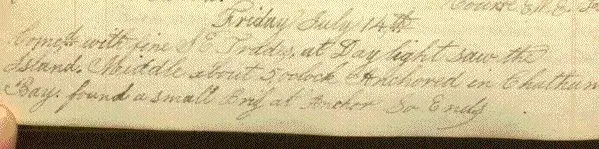 Course S.E.
Friday July 14th
Comes with fine S E Trades, at Day light saw the
Island. Middle about 5 oclock Anchored in Chatham
Bay. found a small Brig at Anchor So Ends